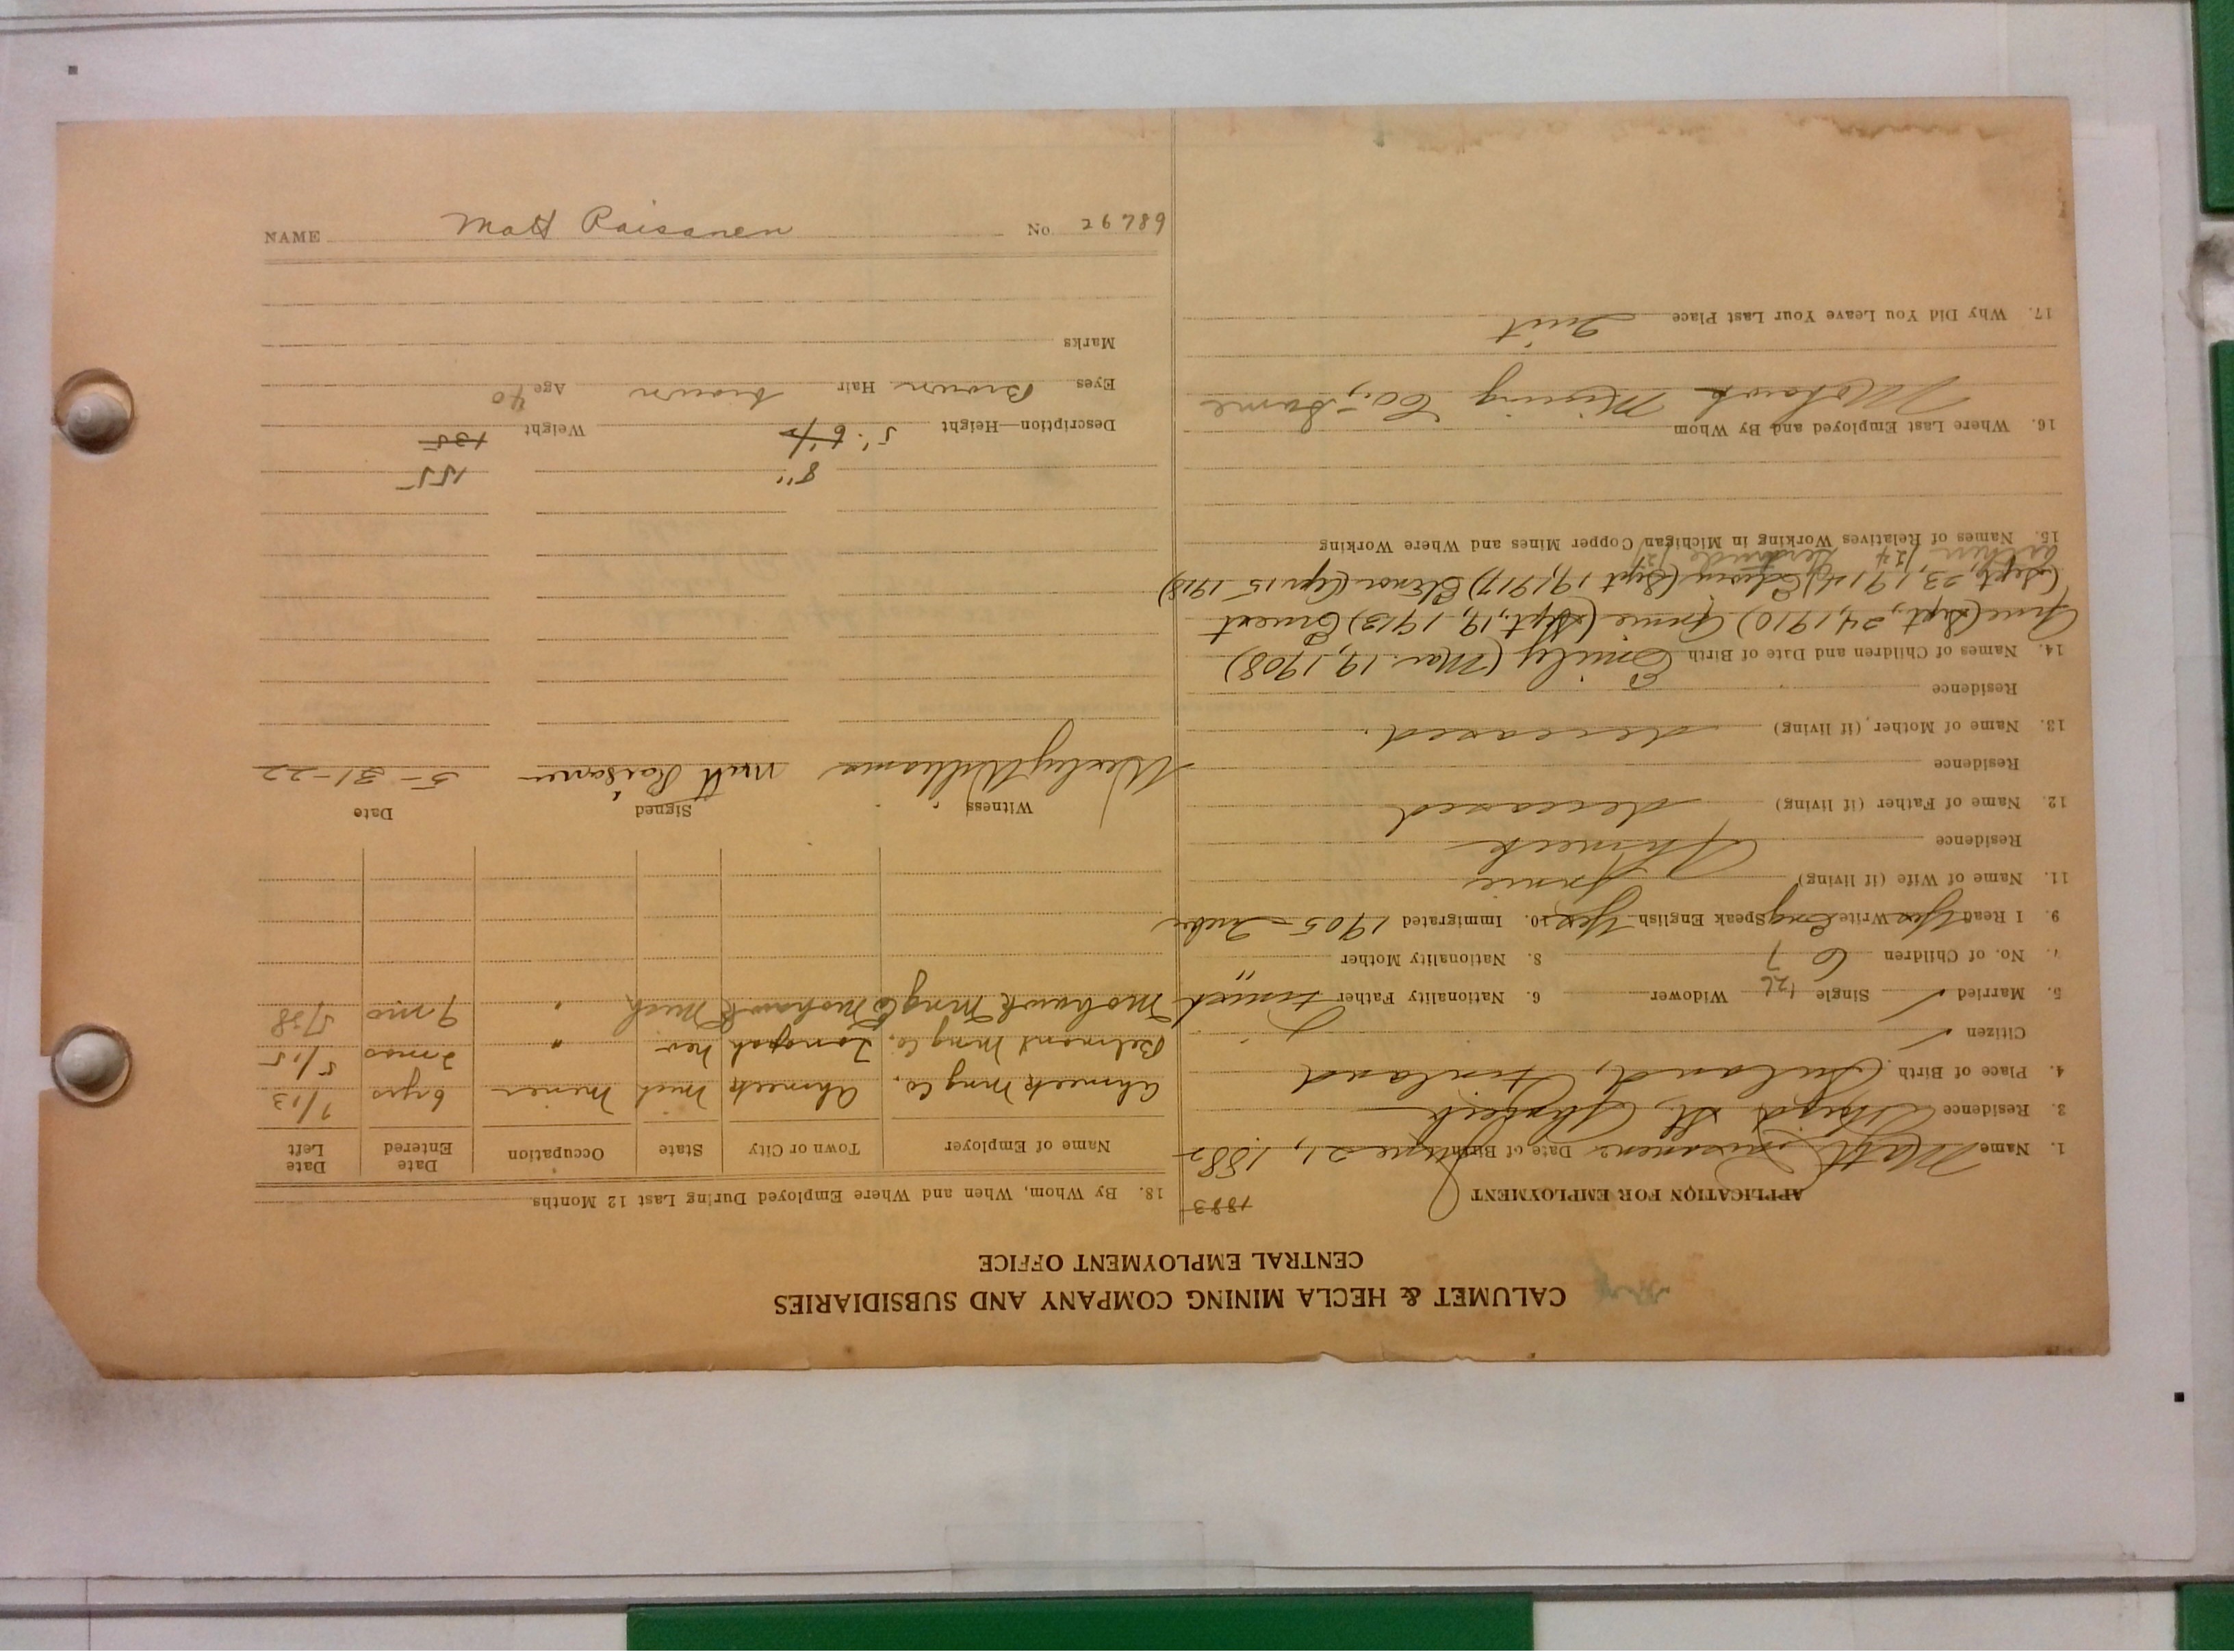 CALUMET & HECLA MINING COMPANY AND SUBSIDIARIES
CENTRAL EMPLOYMENT OFFICE
APPLICATION FOR EMPLOYMENT
1883
1. Name Matt Raisanen Date of Birth June 21, 1882
3. Residence St., Ahmeek
4. Place of Birth Finland
Citizen ✓
5. Married ✓ Single Widower 6. Nationality Father Finnish
'26
7. No. of Children 6 7 8. Nationality Mother "
9. I Read Yes Write Eng Speak English Yes 10. Immigrated 1905
11. Name of Wife (if living) Annie
Residence Ahmeek
12. Name of Father (if living) deceased
Residence
13. Name of Mother, (if living) deceased.
Residence
14. Names of Children and Date of Birth Emily (Mar. 19, 1908)
(Sept., 24, 1910) (Sept, 19, 1913)
(Sept, 23, 1914) (Sept 19, 1917) Elinor (15 1918)
15. Names of Relatives Working in Michigan Copper Mines and Where Working
16. Where Last Employed and By Whom
Mohawk Mining Co., - Same
17. Why Did You Leave Your Last Place Quit
18. By Whom, When and Where Employed During Last 12 Months
Name of Employer Town or City State Occupation Date Entered Date Left
Ahmeek Mng Co. Ahmeek Mich Miner 6 yrs 7/13
Belmont Mng Co. Tonopah Nev " 2 mos 5/15
Mohawk Mng Co Mohawk Mich " 9 mo
Witness Signed Date
Wesley Williams Matt Raisanen 5-31-22
8" 155
Description—Height 5' 6 1/2 Weight 135
Eyes Brown Hair brown Age 40
Marks
NAME Matt Raisanen No. 26789